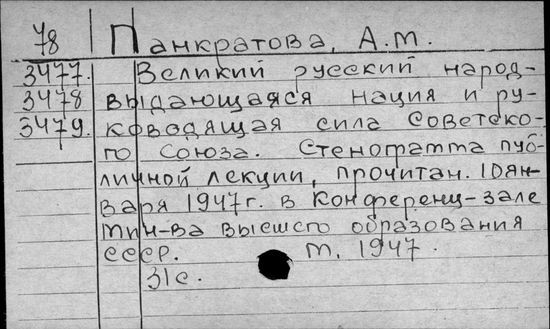 78 Панкратова, А.М.
3477. Великий русский народ-
3478 выдающаяся нация и ру-
3479. ководящая сила Советско-
го Союза. Стенограмма пуб-
личной лекции, прочитан. 10 ян-
варя 1947 г. в Конференц-зале
Мин-ва высшего образования
СССР. М. 1947.
31 с.